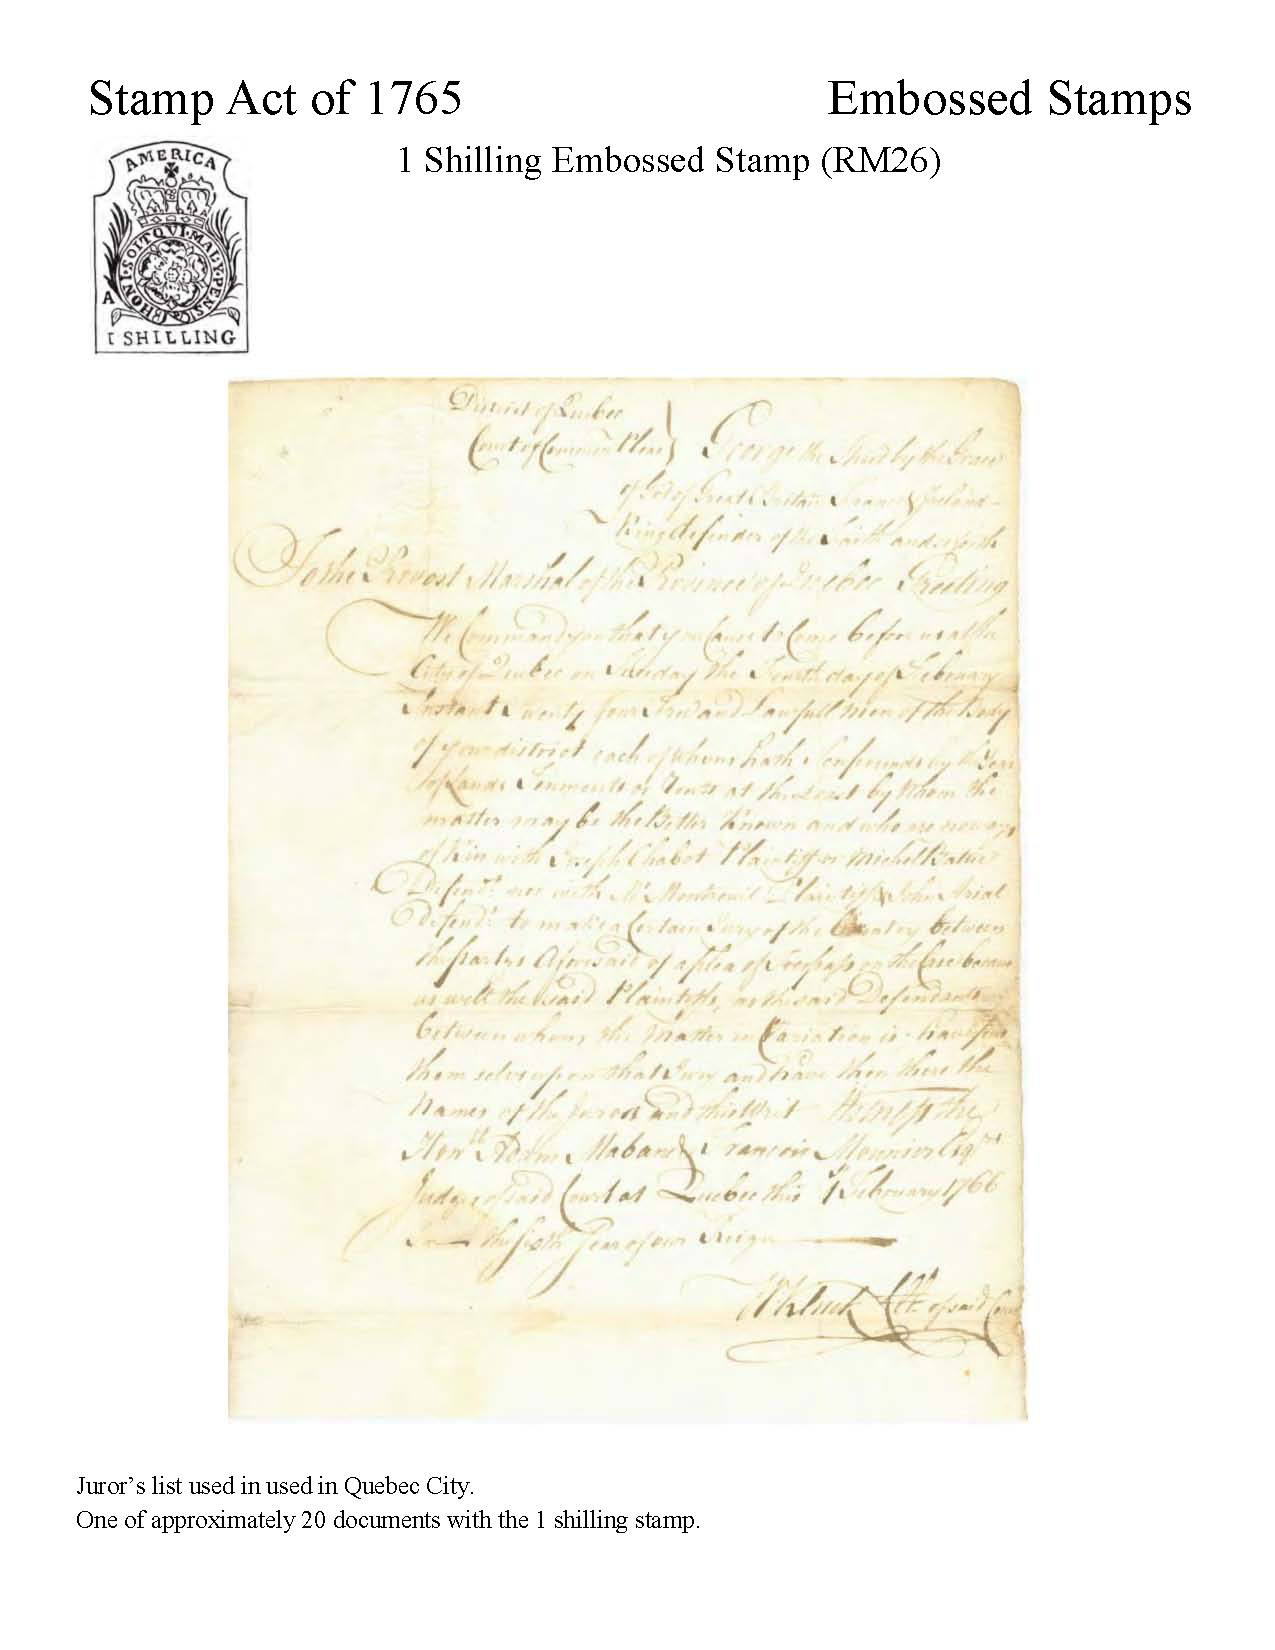 Stamp Act of 1765 Embossed Stamps
1 Shilling Embossed Stamp (RM26)
AMERICA
HONI·SOIT·QUI·MAL·Y·PENSE
A
I SHILLING
District of Quebec
Court of Common Pleas } George the Third by the Grace
of God of Great Britain France & Ireland
King defender of the Faith and so forth
To the Provost Marshal of the Province of Quebec Greeting
We Command you that you Cause to Come before us at the
City of Quebec on Tuesday the Fourth day of February
Instant Twenty four Free and Lawfull men of the Body
of your district each of whom hath pounds by the Year
of Lands Tenments or Rents at the Least by Whom the
matter may be the Better Known and who are no ways
of Kin with Joseph Chabot Plaintiff or Michel
Defendt. nor with Mr. Montreuil Plaintiff & John Arial
defendt. to make a Certain Jury of the Country between
the partys Aforesaid of a plea of Trespass on the Case because
as well the said Plaintiffs, as the said Defendants
between whom the Matter in Variation is have put
them selves upon that Jury and have then there the
Names of the Jurors and this Writ Witness the
Honble. Adam Maban & Francois Mounier Esqrs.
Judges of said Court at Quebec this 1st February 1766
In the Sixth Year of our Reign
of said Court
Juror's list used in used in Quebec City.
One of approximately 20 documents with the 1 shilling stamp.